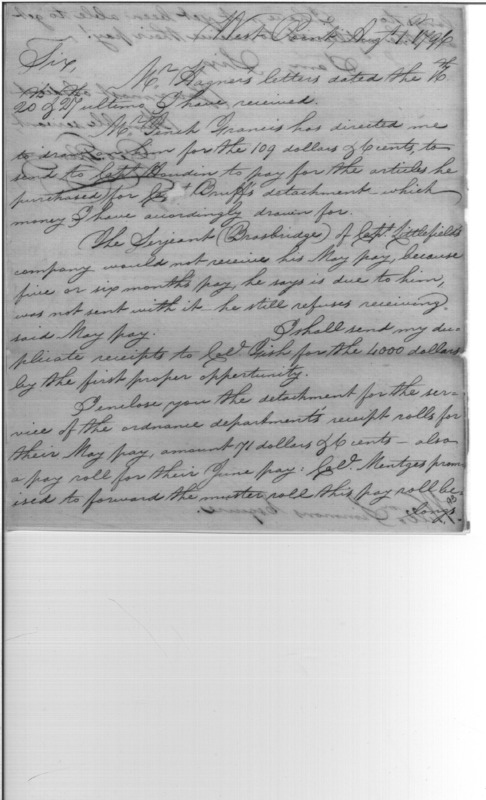 West Point, Augt. 1. 1796
Sir,
Mr. Wagner's letters dated the
20 & 27 ultimo I have received.
Mr. Tench Francis has directed me
to draw on him for the 109 dollars & 6 cents, to
send to Capt. Houdin to pay for the articles he
purchased for Bruff's detachment - which
money I have accordingly drawn for.
The Serjeant (Brasbridge) of Capt. Littlefield's
company would not receive his May pay, because
five or six months pay, he says is due to him,
was not sent with it - he still refuses receiving
said May pay. I shall send my du-
plicate receipts to Col. Fish for the 4000 dollars
by the first proper opportunity.
I enclose you the detachment for the ser-
vice of the ordnance department's receipt rolls for
their May pay, amount 71 dollars & 6 cents - also
a pay roll for their June pay: Col. Mentges prom-
ised to forward the muster roll this pay roll be-
longs
Simmons Esquire.